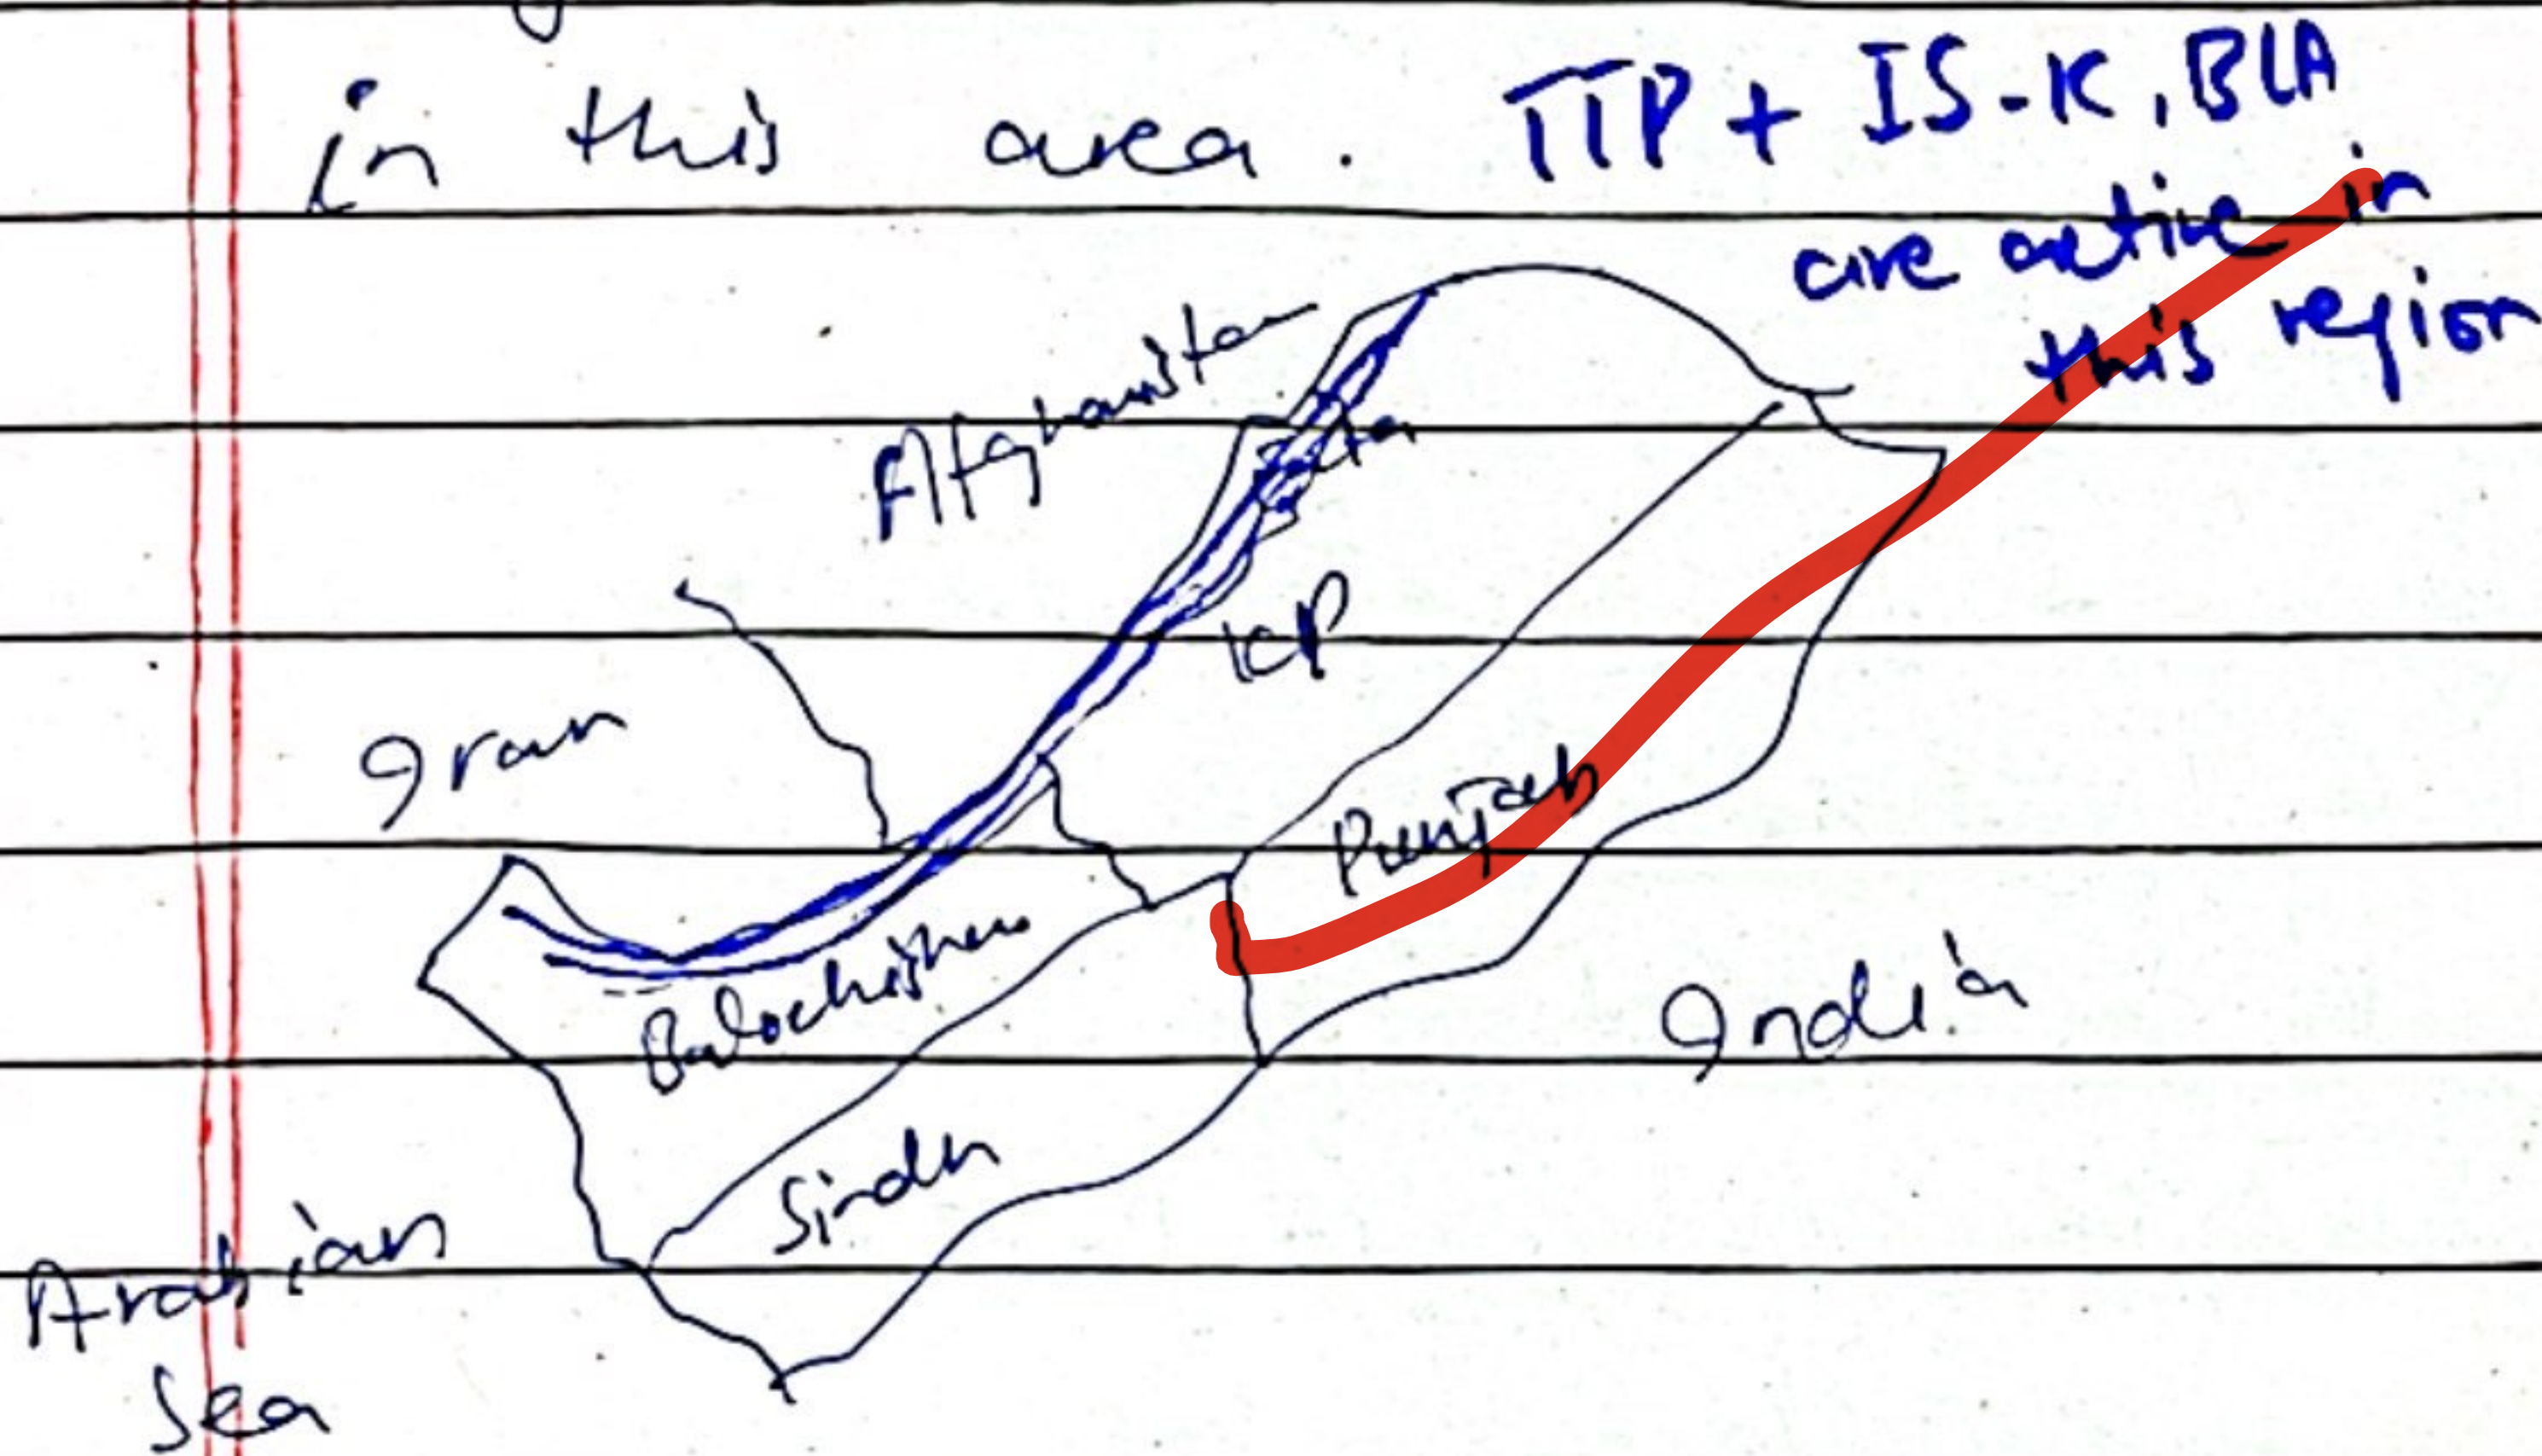 in this area. TTP + IS-K, BLA
are active in
this region
Afghanistan
KP
Iran
Punjab
Balochistan
India
Sindh
Arabian
Sea